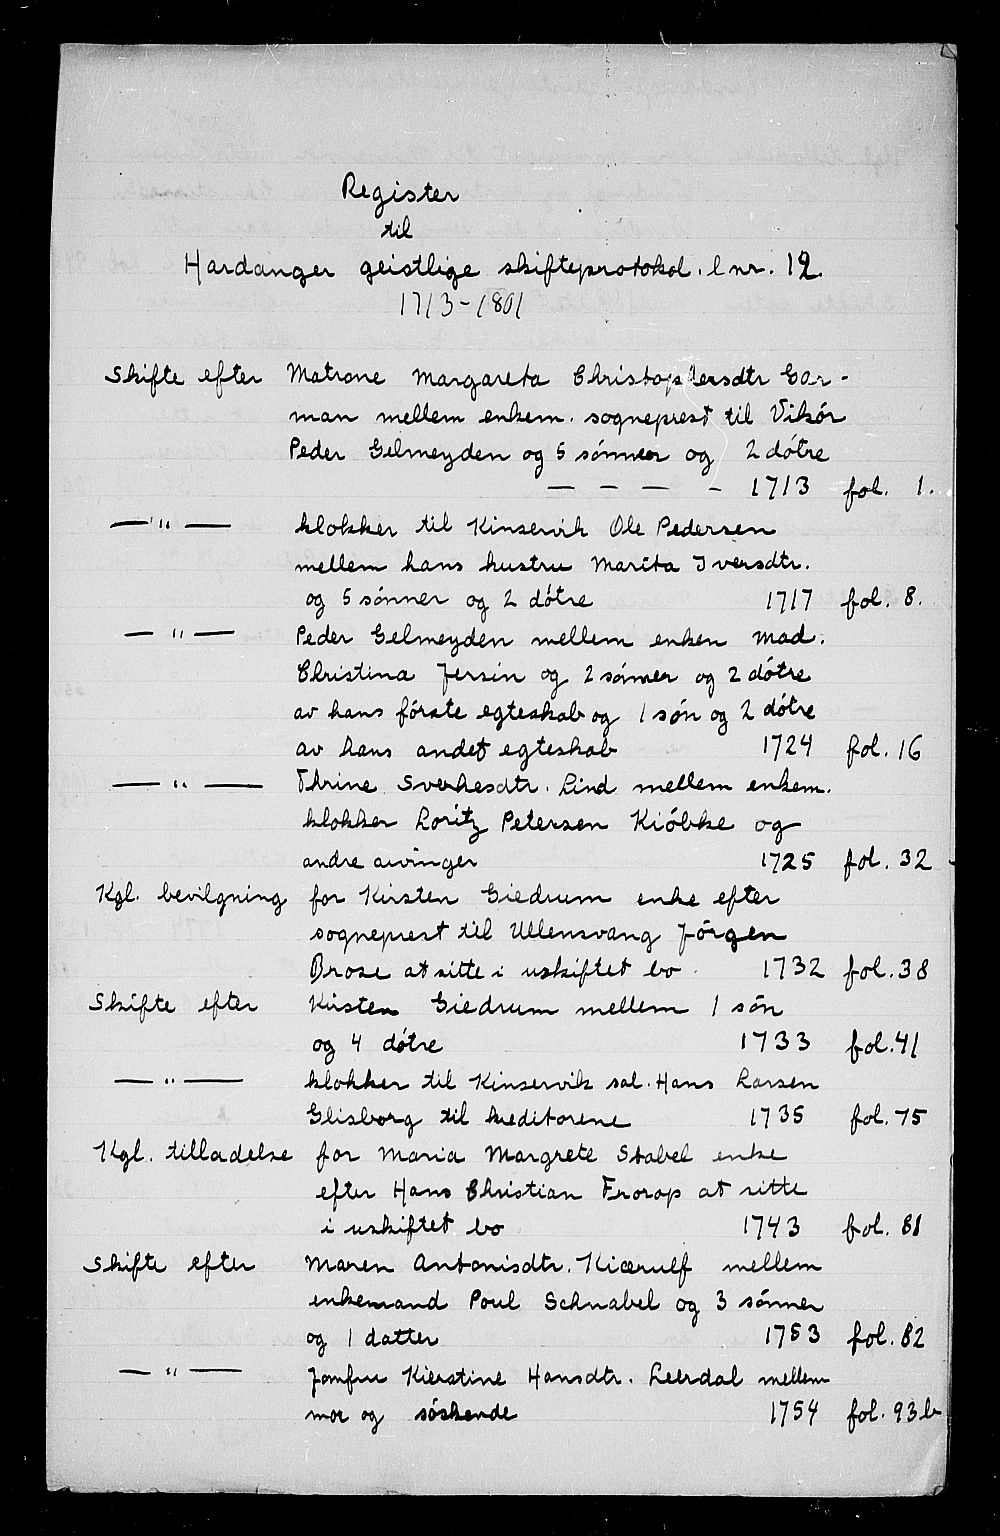 Register
til
Hardanger geistlige skifteprotokol. lnr. 12.
1713-1801
Skifte efter Matrone Margareta Christophersdtr Gar-
man mellem enkem. sogneprest til Vikör
Peder Gelmeyden og 5 sönner og 2 dötre
— — — — 1713 fol. 1.
— " — klokker til Kinservik Ole Pedersen
mellem hans hustru Marita Iversdtr.
og 5 sönner og 2 dötre 1717 fol. 8.
— " — Peder Gelmeyden mellem enken mad.
Christina Jersin og 2 sönner og 2 dötre
av hans förste egteskab og 1 sön og 2 dötre
av hans andet egteskab 1724 fol. 16
— " — Thrine Sverkesdtr. Lind mellem enkem.
klokker Loritz Petersen Kiöbke og
andre arvinger 1725 fol. 32
Kgl. bevilgning for Kirsten Giedrum enke efter
sogneprest til Ullensvang Jörgen
Brose at sitte i uskiftet bo. 1732 fol. 38
Skifte efter Kirsten Giedrum mellem 1 sön
og 4 dötre 1733 fol. 41
— " — klokker til Kinservik sal. Hans Larsen
Glisborg til kreditorene 1735 fol. 75
Kgl. tilladelse for Maria Margrete Stabel enke
efter Hans Christian Frorop at sitte
i uskiftet bo 1743 fol. 81
Skifte efter Maren Antonisdtr. Kiærulf mellem
enkemand Poul Schnabel og 3 sönner
og 1 datter 1753 fol. 82
— " — Jomfru Kierstine Hansdtr. Leerdal mellem
mor og söskende 1754 fol. 93b